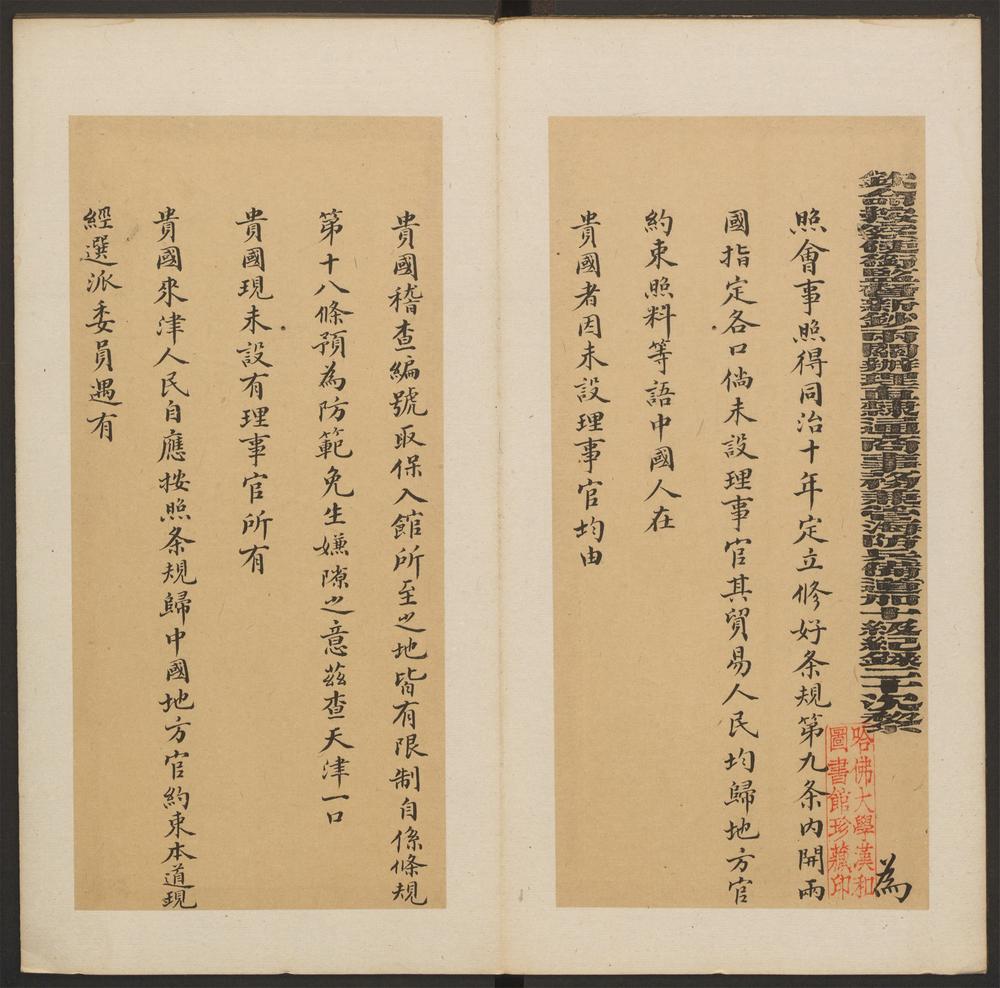 欽命按察使銜監督新鈔兩關辦理直隷通商事務兼管海防兵備道加十級紀錄二十次黎
為
照會事照得同治十年定立修好条規第九条内開兩
國指定各口倘未設理事官其貿易人民均歸地方官
約束照料等語中國人在
貴國者因未設理事官均由
貴國稽查編號取保入館所至之地皆有限制自係條規
第十八條預為防範免生嫌隙之意茲查天津一口
貴國現未設有理事官所有
貴國來津人民自應按照条規歸中國地方官約束本道現
經選派委員遇有
哈佛大學漢和
圖書館珍藏印